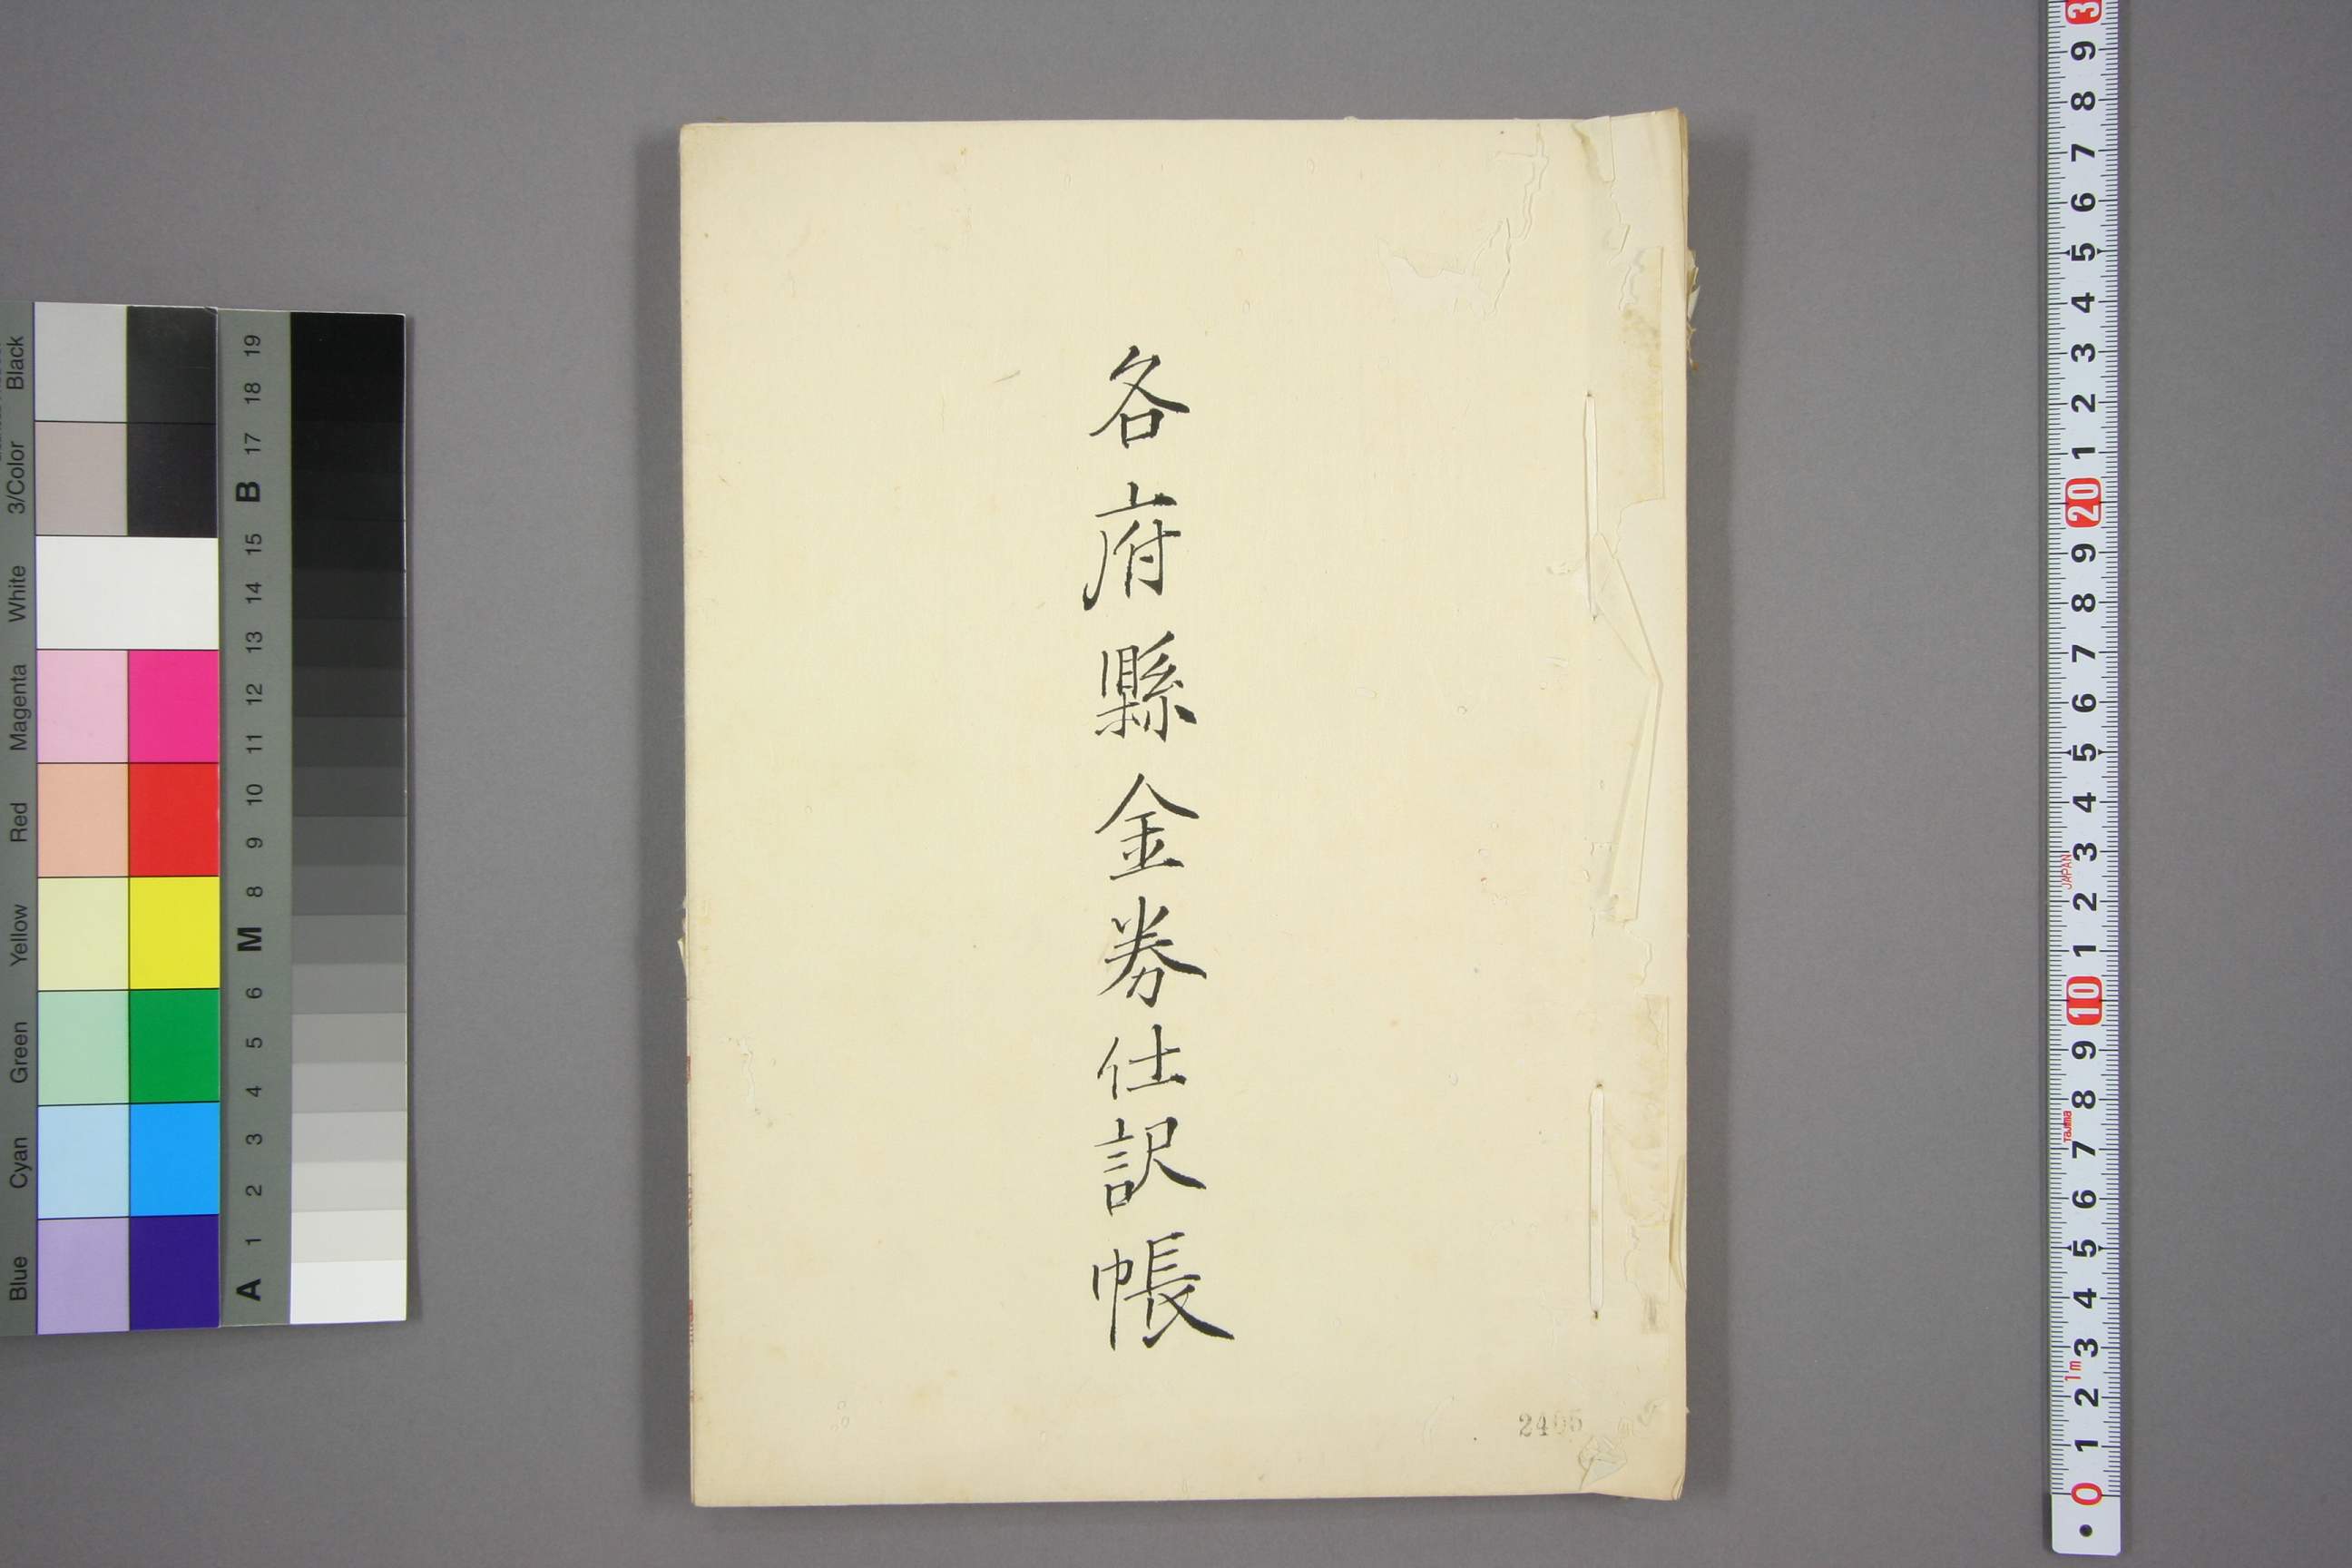 各府縣金券仕訳帳
2405
Black
3/Color
White
Magenta
Red
Yellow
Green
Cyan
Blue
19
18
17
B
15
14
13
12
11
10
9
8
M
6
5
4
3
2
1
A
3
9
8
7
6
5
4
3
2
1
20
9
8
7
6
5
4
3
JAPAN
2
1
10
9
8
Tajima
7
6
5
4
3
1m
2
1
0